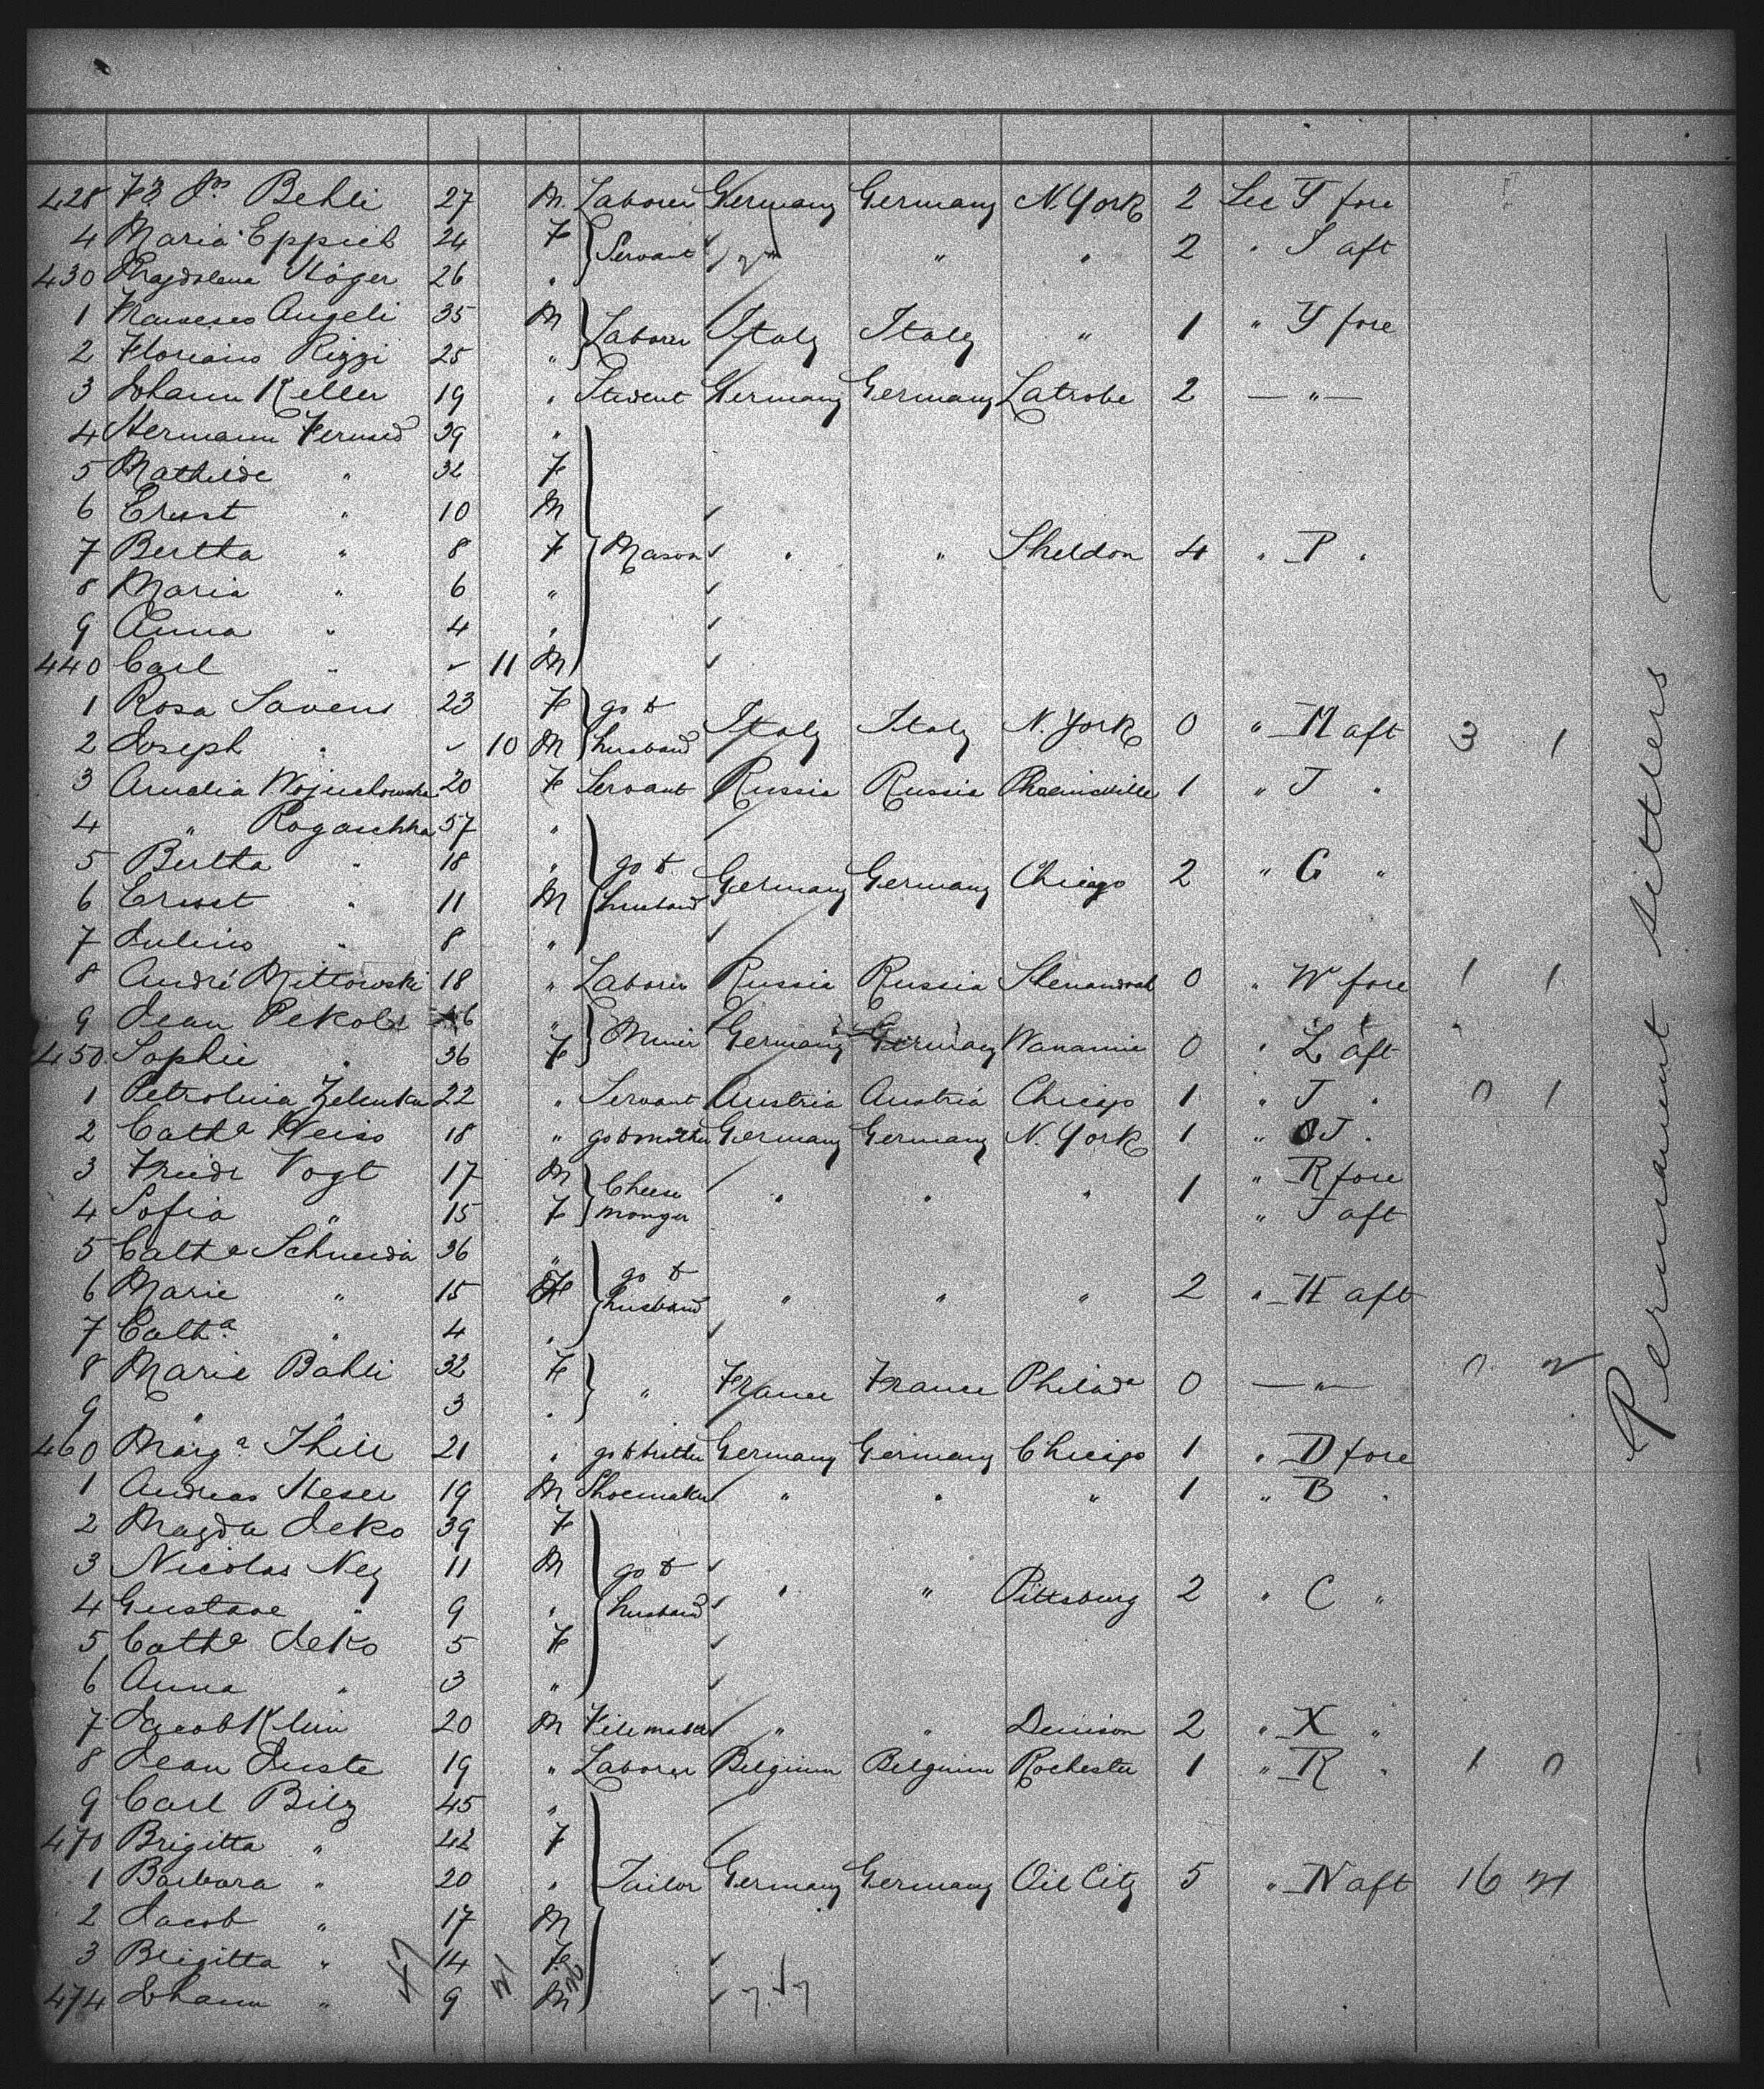 428 Fz Jos Behli 27 M Laborer Germany Germany N. York 2 Lee Y fore
4 Maria Eppich 24 F Servant " " " 2 " J aft
430 Magdalena Höger 26 "
1 Angeli 35 M Laborer Italy Italy " 1 " Y fore
2 Floriano Rizzi 25 "
3 Johann Keller 19 " Student Germany Germany Latrobe 2 — " —
4 Hermann 39 "
5 Mathilde " 32 F
6 Ernst " 10 M
7 Bertha " 8 F Mason " " Sheldon 4 " P "
8 Maria " 6 "
9 Anna " 4 "
440 Carl " - 11 M
1 Rosa Savens 23 F go to husband Italy Italy N. York 0 " M aft 3 1
2 Joseph " - 10 M
3 Amalia 20 F Servant Russia Russia 1 " J "
4 " Rogaschka 57 "
5 Bertha " 18 " go to husband Germany Germany Chicago 2 " G "
6 Ernst " 11 M
7 Julius " 8 "
8 André Mittowski 18 " Laborer Russia Russia Shenandoah 0 " W fore 1 1
9 Jean 46 " Miner Germany Germany Wanamie 0 " L aft
450 Sophie " 36 F
1 Petrolina Zelenka 22 " Servant Austria Austria Chicago 1 " J " 0 1
2 Catha Weiss 18 " go to mother Germany Germany N. York 1 " J "
3 Friedr Vogt 17 M Cheese monger " " " 1 " R fore
4 Sofia " 15 F " J aft
5 Catha Schneider 36 "
6 Marie " 15 F go to husband " " " 2 " H aft
7 Catha " 4 "
8 Marie Bahli 32 F " France France Philada 0 — " —
9 " " 3 "
460 Marga Thill 21 " go to brother Germany Germany Chicago 1 " D fore
1 Andreas Heser 19 M Shoemaker " " " 1 " B "
2 Magda Jeko 39 F
3 Nicolas Ney 11 M go to husband " " Pittsburg 2 " C "
4 Gustave " 9 "
5 Catha Jeko 5 F
6 Anna " 3 "
7 Jacob Klein 20 M Filemaker " " Denison 2 " X "
8 Jean Juste 19 " Laborer Belgium Belgium Rochester 1 " R " 1 0
9 Carl Bilz 45 "
470 Brigitta " 42 F
1 Barbara " 20 " Tailor Germany Germany Oil City 5 " N aft 16
2 Jacob " 17 M
3 Brigitta " 14 F
474 Johann " 9 M
Permanent settlers